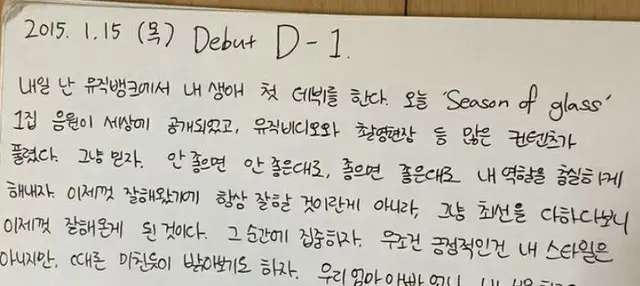 2015. 1.15 (목) Debut D-1.
내일 난 뮤직뱅크에서 내 생애 첫 데뷔를 한다. 오늘 'Season of glass'
1집 음원이 세상에 공개되었고, 뮤직비디오와 촬영현장 등 많은 컨텐츠가
풀렸다. 그냥 믿자. 안 좋으면 안 좋은대로, 좋으면 좋은대로 내 역할을 충실하게
해내자. 이제껏 잘해왔기에 항상 잘할 것이란게 아니라, 그냥 최선을 다하다보니
이제껏 잘해온게 된 것이다. 그 순간에 집중하자. 무조건 긍정적인건 내 스타일은
아니지만, 때론 미친듯이 밝아보기도 하자. 우리 엄마 아빠 언니,